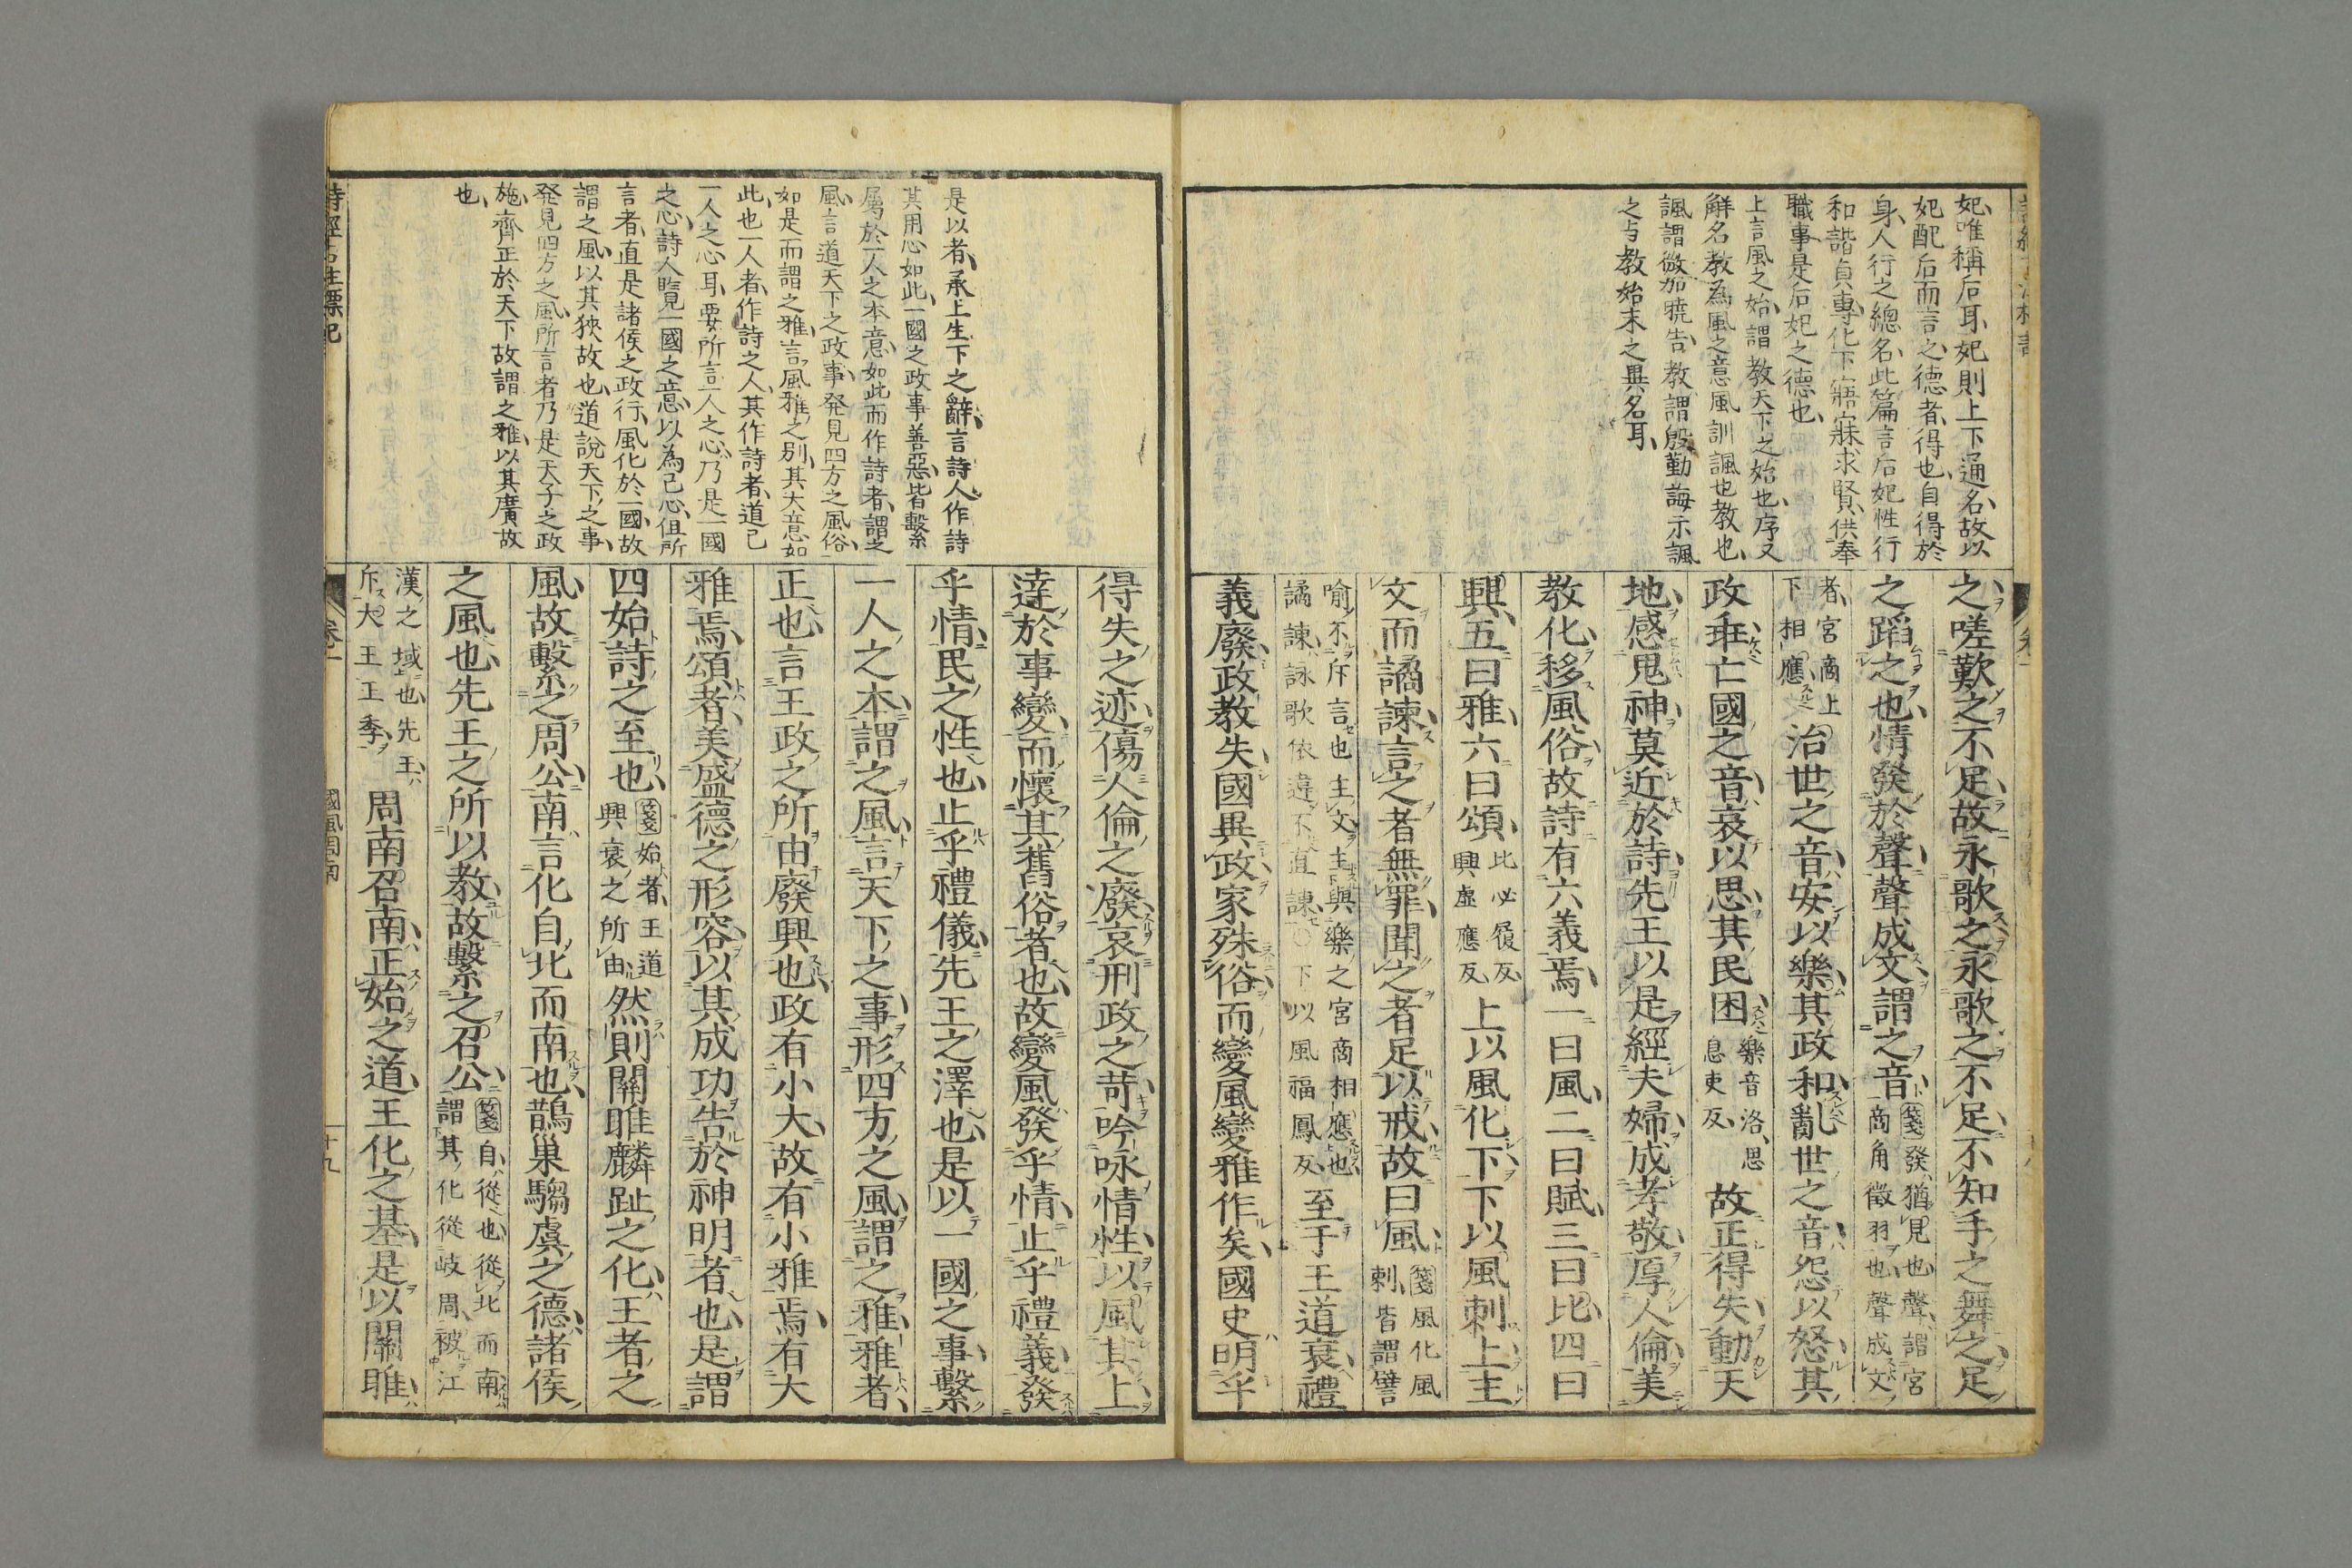 妃唯稱后耳妃則上下通名故以
妃配后而言之德者得也自得於
身人行之總名此篇言后妃性行
和諧貞專化下寤寐求賢供奉
職事是后妃之德也
上言風之始謂教天下之始也序又
解名教為風之意風訓諷也教也
諷謂微加曉告教謂殷勤誨示諷
之与教始末之異名耳
之嗟歎之不足故永歌之永歌之不足不知手之舞之足
之蹈之也情發於聲聲成文謂之音
箋發猶見也聲謂宮
商角徵羽也聲成文
者宮商上
下相應
治世之音安以樂其政和亂世之音怨以怒其
政乖亡國之音哀以思其民困
樂音洛思
息吏反
故正得失動天
地感鬼神莫近於詩先王以是經夫婦成孝敬厚人倫美
教化移風俗故詩有六義焉一曰風二曰賦三曰比四曰
興五曰雅六曰頌
比必履反
興虛應反
上以風化下下以風刺上主
文而譎諫言之者無罪聞之者足以戒故曰風
箋風化風
刺皆謂譬
喻不斥言也主文主與樂之宮商相應也
譎諫詠歌依違不直諫〇下以風福鳳反
至于王道衰禮
義廢政教失國異政家殊俗而變風變雅作矣國史明乎
是以者承上生下之辭言詩人作詩
其用心如此一國之政事善惡皆繫
屬於一人之本意如此而作詩者謂之
風言道天下之政事発見四方之風俗
如是而謂之雅言風雅之別其大意如
此也一人者作詩之人其作詩者道己
一人之心耳要所言一人之心乃是一國
之心詩人覽一國之意以為己心但所
言者直是諸侯之政行風化於一國故
謂之風以其狹故也道說天下之事
発見四方之風所言者乃是天子之政
施齊正於天下故謂之雅以其廣故
也
得失之迹傷人倫之廢哀刑政之苛吟咏情性以風其上
達於事變而懷其舊俗者也故變風發乎情止乎禮義發
乎情民之性也止乎禮儀先王之澤也是以一國之事繫
一人之本謂之風言天下之事形四方之風謂之雅雅者
正也言王政之所由廢興也政有小大故有小雅焉有大
雅焉頌者美盛德之形容以其成功告於神明者也是謂
四始詩之至也
箋始者王道
興衰之所由
然則關雎麟趾之化王者之
風故繫之周公南言化自北而南也鵲巢騶虞之德諸侯
之風也先王之所以教故繫之召公
箋自從也從北而南
謂其化從岐周被江
漢之域也先王
斥大王王季
周南召南正始之道王化之基是以關雎
卷一
國風周南
十九